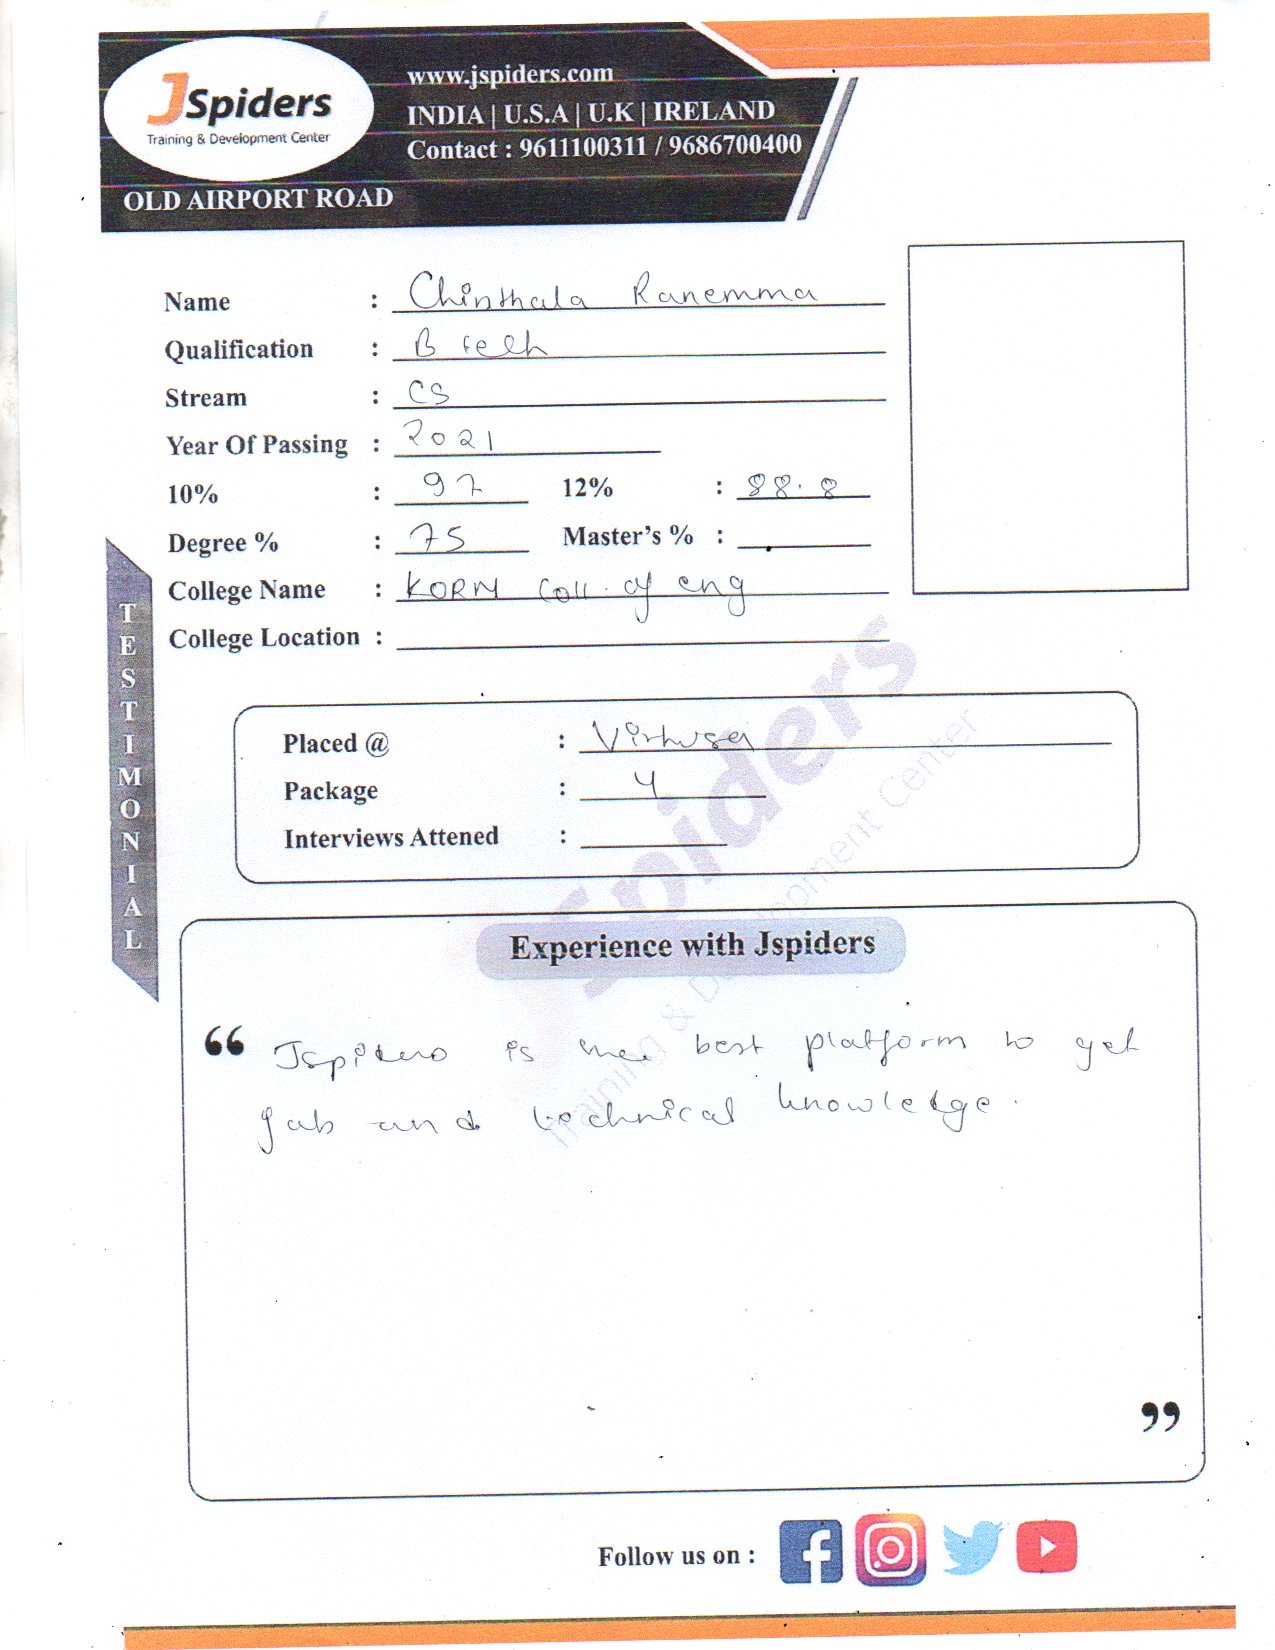 JSpiders
Training & Development Center
www.jspiders.com
INDIA | U.S.A | U.K | IRELAND
Contact : 9611100311 / 9686700400
OLD AIRPORT ROAD
Name : Chinthala Ranemma
Qualification : B tech
Stream : CS
Year Of Passing : 2021
10% : 97 12% : 88.8
Degree % : 75 Master's % :
College Name : KORM Coll. of eng
College Location :
TESTIMONIAL
Placed @ : Virtusa
Package : 4
Interviews Attened :
Experience with Jspiders
“ Jspiders is the best platform to get
job and technical knowledge.
”
Spiders
Training & Development Center
Follow us on :